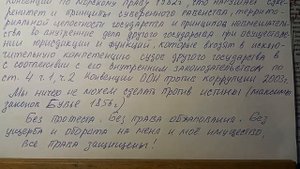 конвенции по морскому праву 1982 г., это нарушает суве-
ренитет и принципы суверенного равенства, террито-
риальной целостности государства и принципов невмешатель-
ства во внутренние дела другого государства при осуществлении
юрисдикции и функций, которые входят в исклю-
чительную компетенцию судов другого государства в
соответствии с его внутренним законодательством по
ст. 4 ч. 1, ч. 2 Конвенции ООН против коррупции 2003г.
Мы ничего не можем сделать против истины (максимы
законов Бувье 1856г.)
Без протеста. Без права обжалования. Без
ущерба и оборота на меня и моё имущество.
Все права защищены!